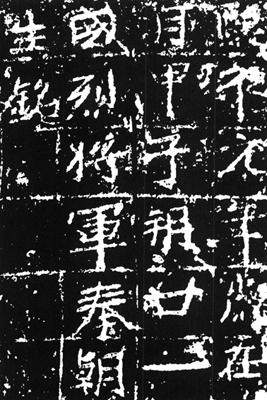 元年歲在
月甲子朔廿一
烈將軍奉朝
生銘